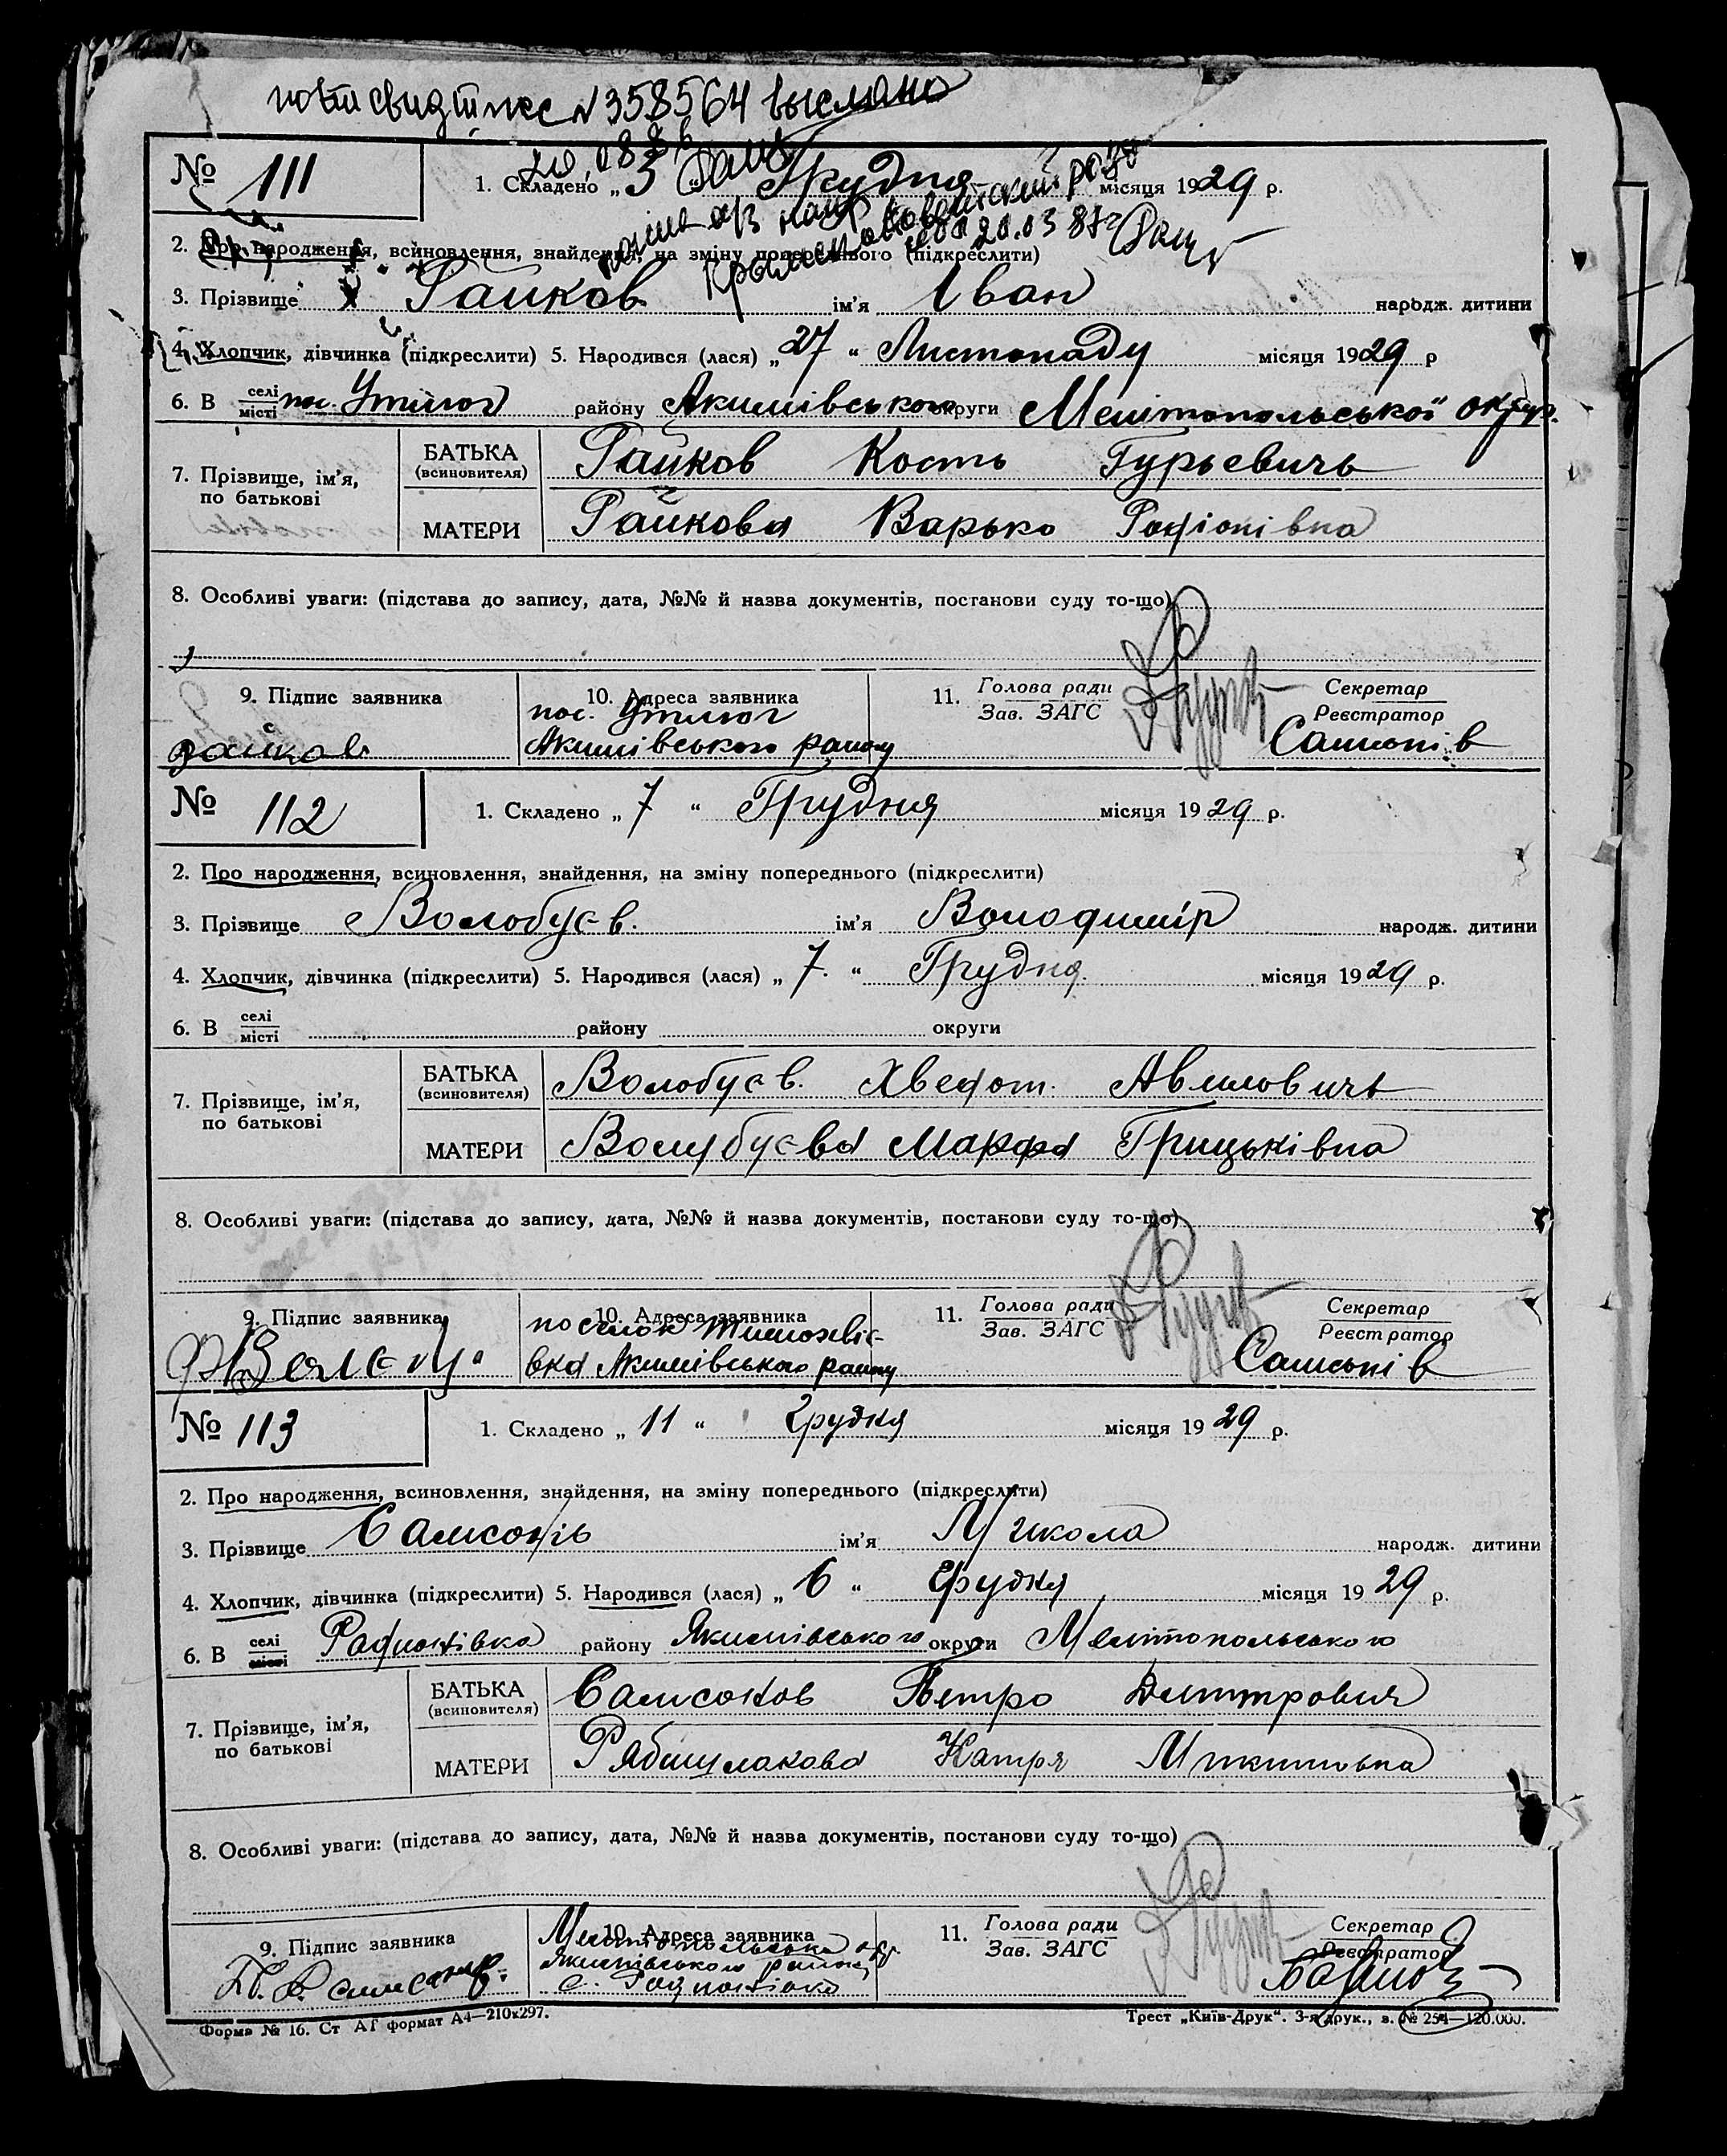 № 358564 выслано
№ 111
1. Складено „3“ Грудня місяця 1929 р.
20.03 87г
2. Про народження, всиновлення, знайдення, на зміну попереднього (підкреслити)
3. Прізвище Райков ім'я Іван народж. дитини
4. Хлопчик, дівчинка (підкреслити) 5. Народився (лася) „27“ Листопаду місяця 1929 р
6. В селі/місті пос. Утлюг району Якимівського округи Мелітопольської окр.
7. Прізвище, ім'я, по батькові
БАТЬКА (всиновителя) Райков Кость Гурьевичь
МАТЕРИ Райкова Варько Радіонівна
8. Особливі уваги: (підстава до запису, дата, №№ й назва документів, постанови суду то-що)
9. Підпис заявника
10. Адреса заявника
11. Голова ради
Зав. ЗАГС
Секретар
Реєстратор
райков
пос. Утлюг
Якимівського району
Самсонів
№ 112
1. Складено „7“ Грудня місяця 1929 р.
2. Про народження, всиновлення, знайдення, на зміну попереднього (підкреслити)
3. Прізвище Волобуєв. ім'я Володимір народж. дитини
4. Хлопчик, дівчинка (підкреслити) 5. Народився (лася) „7.“ Грудня. місяця 1929 р.
6. В селі/місті району округи
7. Прізвище, ім'я, по батькові
БАТЬКА (всиновителя) Волобуєв. Хведот.
МАТЕРИ Волубуєва Марфа Грицьківна
8. Особливі уваги: (підстава до запису, дата, №№ й назва документів, постанови суду то-що)
9. Підпис заявника
10. Адреса заявника
11. Голова ради
Зав. ЗАГС
Секретар
Реєстратор
поселок
вка Якимівського району
Самсонів
№ 113
1. Складено „11“ грудня місяця 1929 р.
2. Про народження, всиновлення, знайдення, на зміну попереднього (підкреслити)
3. Прізвище Самсонів ім'я Микола народж. дитини
4. Хлопчик, дівчинка (підкреслити) 5. Народився (лася) „6“ грудня місяця 1929 р.
6. В селі/місті Радионівка району Якимівського округи Мелітопольського
7. Прізвище, ім'я, по батькові
БАТЬКА (всиновителя) Самсонов Петро Дмитрович
МАТЕРИ Катря Микитовна
8. Особливі уваги: (підстава до запису, дата, №№ й назва документів, постанови суду то-що)
9. Підпис заявника
10. Адреса заявника
11. Голова ради
Зав. ЗАГС
Секретар
Реєстратор
Мелітопольська окр.
Якимівського району
с. Радионівка
Форма № 16. Ст АГ формат А4—210х297.
Трест „Київ-Друк“. 3-я друк., з. № 254—120.000.